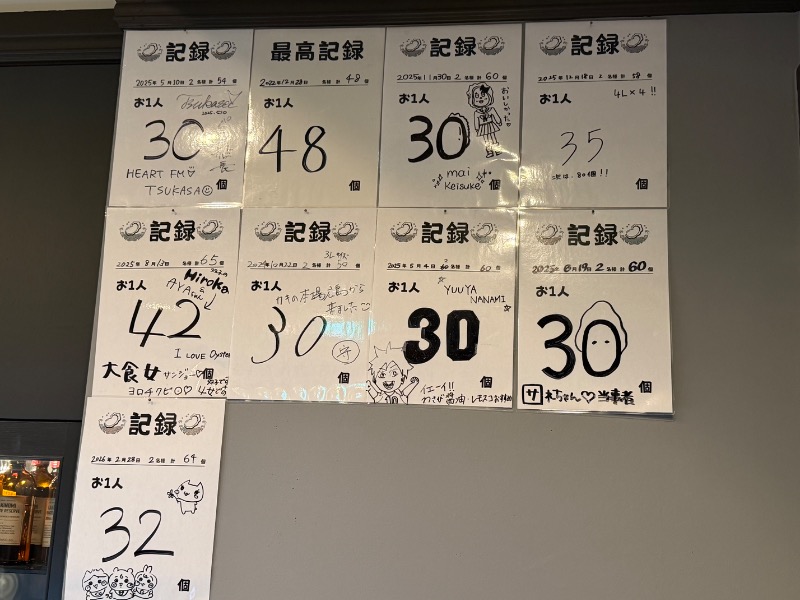 記録
2025年5月10日 2名様 計 54 個
お1人
Tsukasa
30
HEART FM♡
TSUKASA☺
個
最高記録
2022年12月28日 名様 計 48 個
お1人
48
個
記録
2025年11月30日 2名様 計 60 個
お1人
おいしかったよ
30
mai
Keisuke
個
記録
お1人
4L×4!!
35
次は、80個!!
個
記録
2025年8月13日 名様 計 65 個
お1人
Hiroka
AYA &
42
I LOVE Oyster
大食女
個
記録
3Lサイズ
2025年10月22日 2名様 計 50 個
お1人
カキの本場広島から
来ました♡
30
個
記録
2025年5月4日 60 個
お1人
YUUYA
NANAMI
30
個
イエーイ!!
わさび醤油・レモスコおすすめ
記録
2025年6月19日 2名様 計 60 個
お1人
30
個
サ れちゃん♡当事者
記録
2026年2月28日 2名様 計 64 個
お1人
32
個